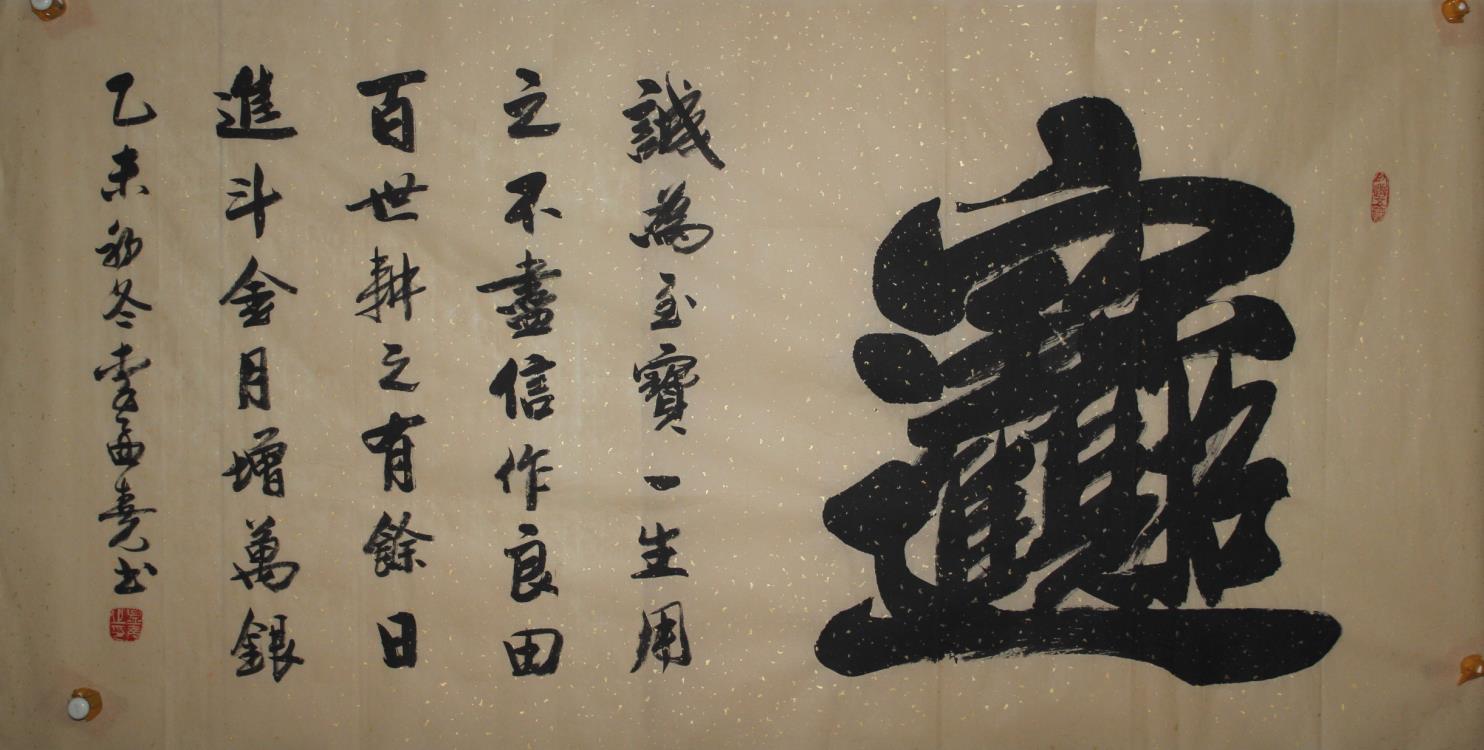 招財進寶
誠為至寶一生用
之不盡信作良田
百世耕之有餘日
進斗金月增萬銀
乙未初冬李堯书